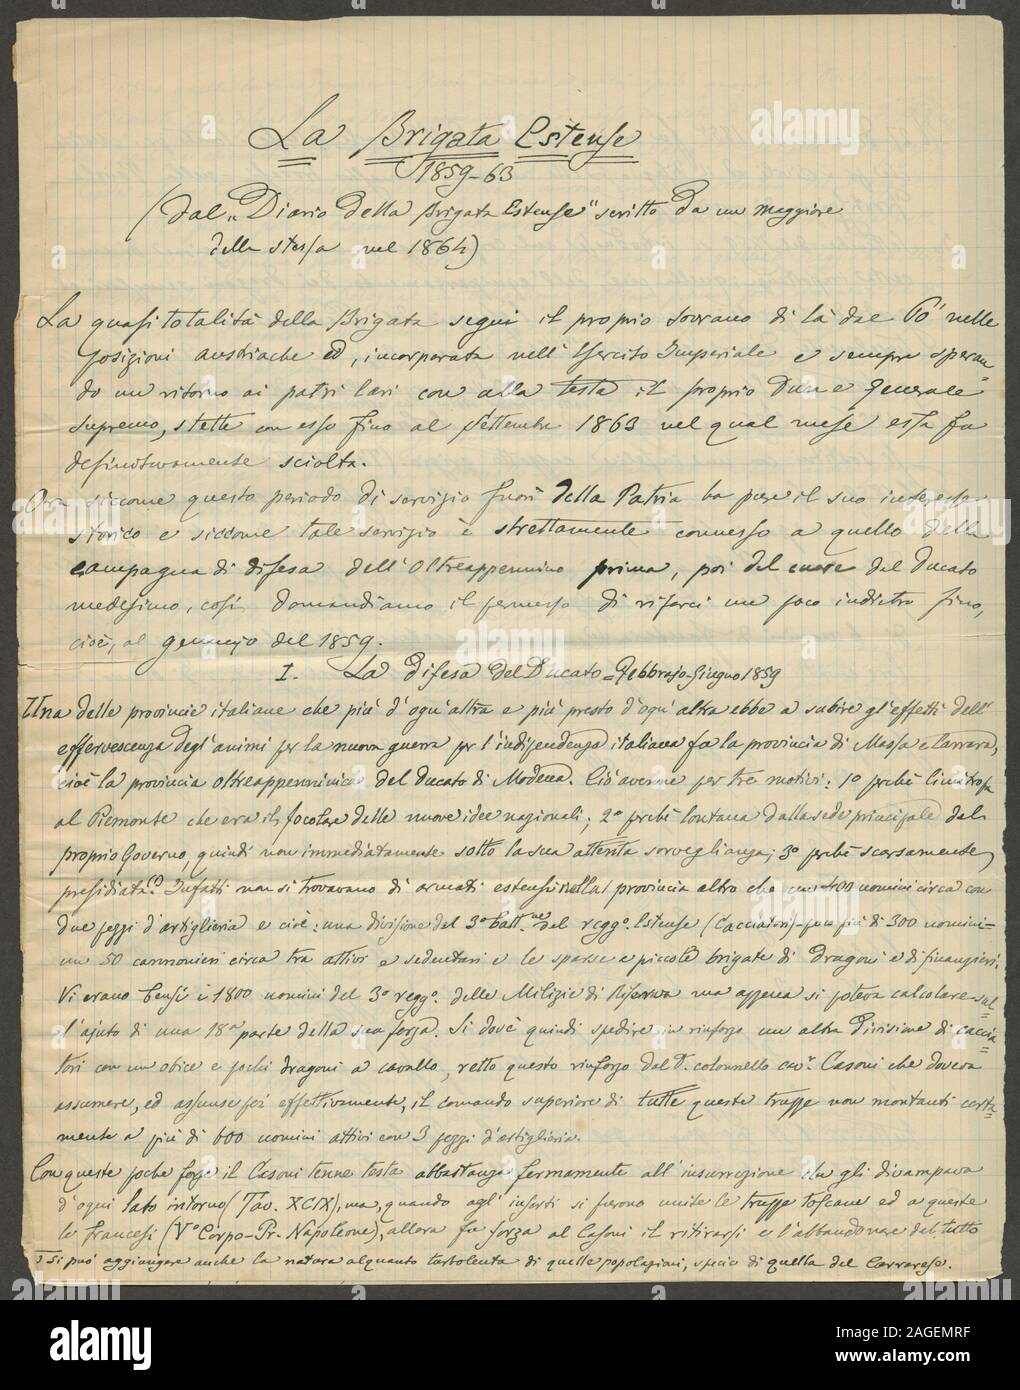 La Brigata Estense
1859-63
(dal „Diario della Brigata Estense" scritto da un maggiore
della stessa nel 1864)
La quasi totalità della Brigata seguì il proprio sovrano di là dal Pò nelle
posizioni austriache ed, incorporata nell'Esercito Imperiale e sempre speran
do un ritorno ai patri lari con alla testa il proprio Duca e generale
supremo, stette con esso fino al Settembre 1863 nel qual mese essa fu
definitivamente sciolta.
Ora siccome questo periodo di servizio fuori della Patria ha pure il suo interesse
storico e siccome tale servizio è strettamente connesso a quello della
campagna di difesa dell'Oltreappennino prima, poi del cuore del Ducato
medesimo, così domandiamo il permesso di rifarci un poco indietro fino,
cioè, al gennajo del 1859.
I. La difesa del Ducato = Febbrajo-Giugno 1859
Una delle provincie italiane che più d'ogn'altra e più presto d'ogn'altra ebbe a subire gl'effetti dell'
effervescenza degl'animi per la nuova guerra per l'indipendenza italiana fu la provincia di Massa e Carrara,
cioè la provincia oltreappenninica del Ducato di Modena. Ciò avenne per tre motivi: 1° perchè limitrofa
al Piemonte che era il focolare delle nuove idee nazionali; 2° perchè lontana dalla sede principale del
proprio Governo, quindi non immediatamente sotto la sua attenta sorveglianza; 3° perchè scarsamente
presidiata.(1) Infatti non si trovavano di armati estensi nella provincia altro che un 400 uomini circa con
due pezzi d'artiglieria e cioè: una divisione del 3° batt.ne del regg.° Estense (Cacciatori)-poco più di 300 uomini-
un 50 cannonieri circa tra attivi e sedentari e le sparse e piccole brigate di dragoni e di finanzieri.
Vi erano bensì i 1800 uomini del 3° regg.° delle Milizie di Riserva ma appena si poteva calcolare sul-
l'ajuto di una 18a parte della sua forza. Si dovè quindi spedire in rinforzo un altra Divisione di caccia
tori con un obice e pochi dragoni a cavallo, retto questo rinforzo dal T. colonnello cav.r Casoni che doveva
assumere, ed assunse poi effettivamente, il comando superiore di tutte queste truppe non montanti certa=
mente a più di 600 uomini attivi con 3 pezzi d'artiglieria.
Con queste poche forze il Casoni tenne testa abbastanza fermamente all'insurrezione che gli divampava
d'ogni lato intorno (Tav. XCIX), ma, quando agl'insorti si furono unite le truppe toscane ed a queste
le francesi (V° Corpo-Pr. Napoleone), allora fu forza al Casoni il ritirarsi e l'abbandonare del tutto
1 Si può aggiungere anche la natura alquanto turbolenta di quelle popolazioni, specie di quella del Carrarese.
alamy
2AGEMRF
www.alamy.com